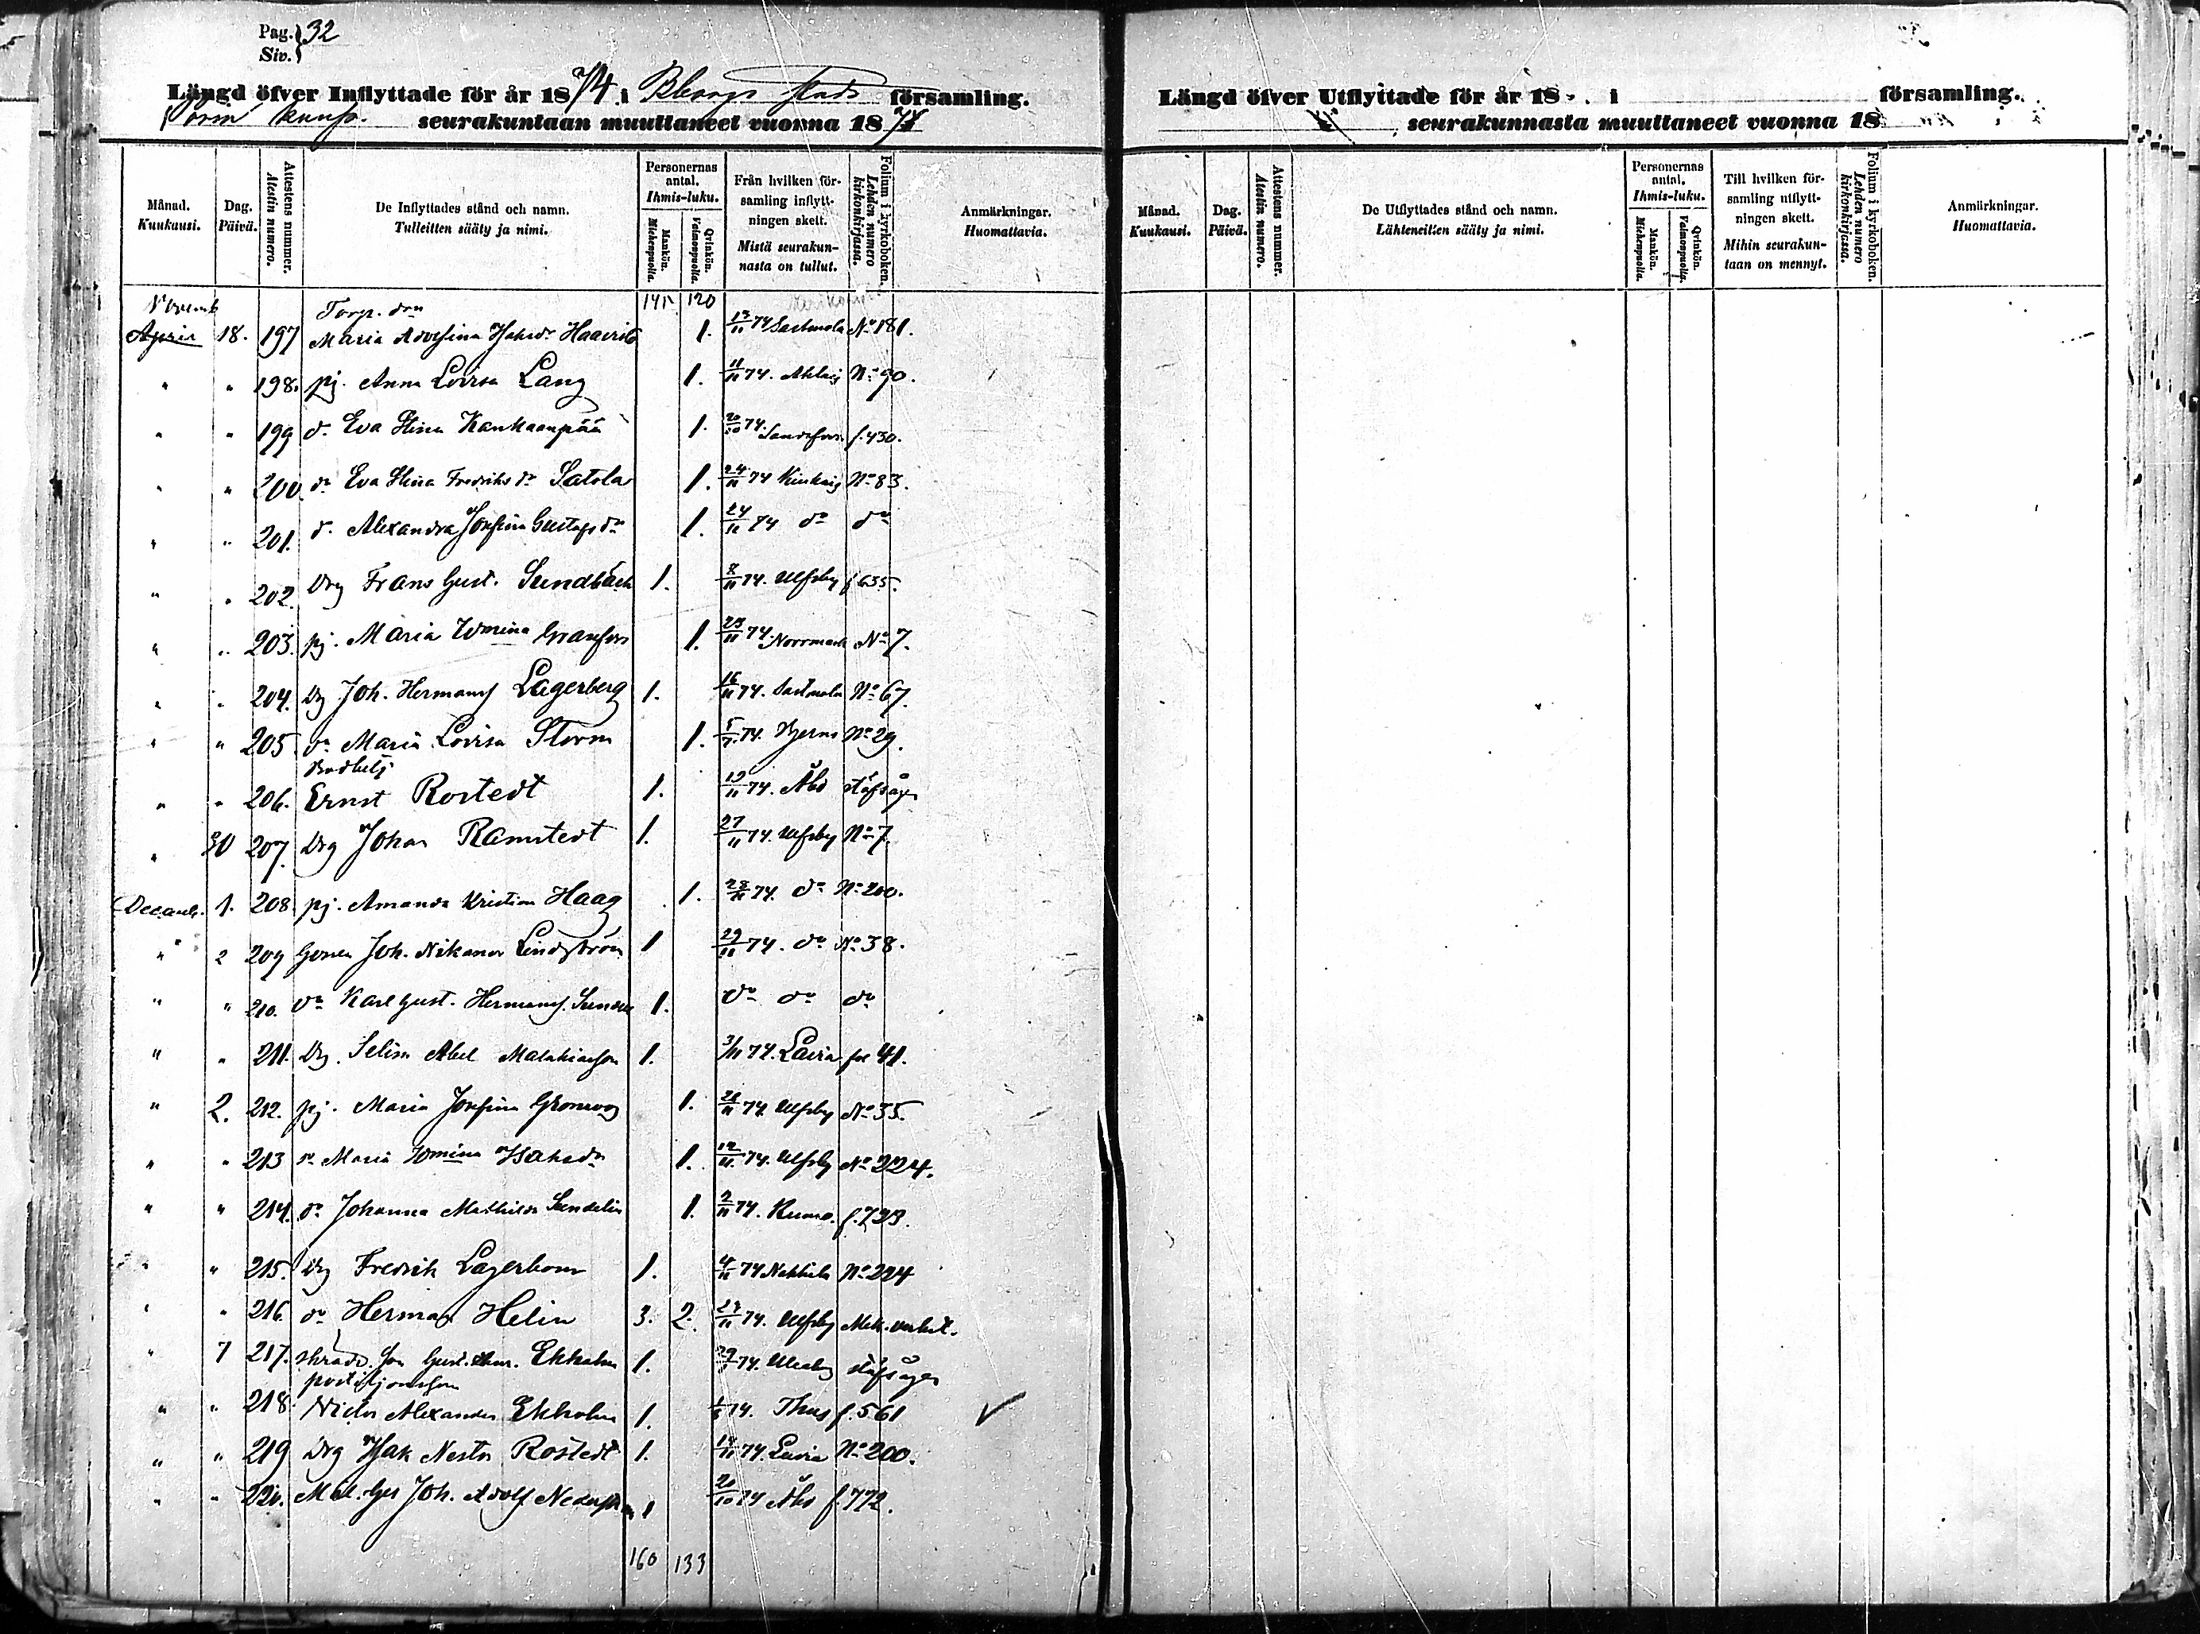 Pag. 32
Siv.
Längd öfver Inflyttade för år 1874 i Bborgs stads församling.
Porin kaup. seurakuntaan muuttaneet vuonna 1874
Månad. Kuukausi. Dag. Päivä. Attestens nummer. Atestin numero. De Inflyttades stånd och namn. Tulleitten sääty ja nimi. Personernas antal. Ihmis-luku. Mankön. Miehenpuolia. Qvinkön. Vaimonpuolia. Från hvilken församling inflyttningen skett. Mistä seurakunnasta on tullut. Folium i kyrkoboken. Lehden numero kirkonkirjassa. Anmärkningar. Huomattavia.
Novemb 141 120
Torp. dra
April 18. 197 Maria Adolfina Isaksdr Haavisto 1. 13/11 74 Sastmola No 181.
" " 198. pj. Anna Lovisa Lang 1. 4/11 74. Ahlais No 90.
" " 199 do Eva Stina Kankaanpää 1. 20/10 74. f. 430.
" " 200. do Eva Stina Fredriksdr Satola 1. 24/11 74 No 83.
" " 201. do Alexandra Josefina Gustafsdr 1. 24/11 74 do do
" " 202. Drg Frans Gust. Sundbäck 1. 8/11 74. Ulfsby f 635.
" " 203. pj. Maria Wmina Granfors 1. 23/11 74. Norrmark No 7.
" " 204. Dg Joh. Hermans Lagerberg 1. 16/11 74. Sastmola No 67.
" " 205 do Maria Lovisa Storm 1. 5/7 74. Bjerno No 29.
Bodbetj
" " 206. Ernst Rostedt 1. 19/11 74. Åbo
" 30 207. Drg Johan Ramstedt 1. 27/11 74. Ulfsby No 7.
Decemb. 1. 208. pj. Amanda Kristina Haag 1. 28/11 74. do No 200.
" 2 209 Joh. Nikanor Lindström 1 29/11 74. do No 38.
" " 210. do Karl Gust. Hermans. 1. do do do
" " 211. Dg. Selim Abel Malakiasson 1. 3/11 74. Lavia fol 41.
" 2. 212. pj. Maria Josefina Grönroos 1. 28/11 74. Ulfsby No 35.
" " 213 do Maria Wmina Isaksdr 1. 12/11 74. Ulfsby No 224.
" " 214. do Johanna Mathilda Sundelin 1. 2/11 74. Raumo. f. 733.
" " 215. Dg Fredrik Lagerbom 1. 4/11 74 Nakkila No 224
" " 216. do Herman Helin 3. 2. 27/11 74. Ulfsby Mek. verkst.
" 7 217. skradd. son Gust. Ekholm 1. 74. Uleåborg
postiljonsson
" " 218 Victor Alexander Ekholm 1. 74. Thus f. 561 ✓
" " 219 Drg Isak Nestor Rostedt 1. 14/11 74. Luvia No 200.
" " 220. Mål. Ges Joh. Adolf 1 20/10 74 Åbo f. 772.
160 133
Längd öfver Utflyttade för år 18 i församling.
seurakunnasta muuttaneet vuonna 18
Månad. Kuukausi. Dag. Päivä. Attestens nummer. Atestin numero. De Utflyttades stånd och namn. Lähteneitten sääty ja nimi. Personernas antal. Ihmis-luku. Mankön. Miehenpuolia. Qvinkön. Vaimonpuolia. Till hvilken församling utflyttningen skett. Mihin seurakuntaan on mennyt. Folium i kyrkoboken. Lehden numero kirkonkirjassa. Anmärkningar. Huomattavia.